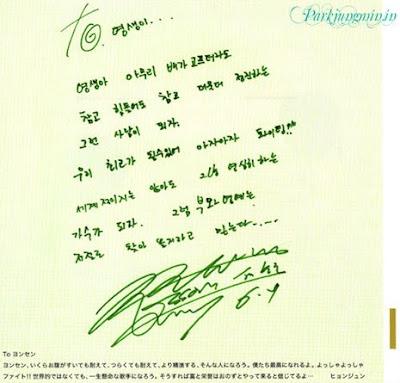 Parkjungmin.in
To. 영생아...
영생아 아무리 배가 고프더라도
참고 힘들어도 참고 더욱더 정진하는
그런 사람이 되자.
우리 최고가 될수있어 아자아자 화이팅!!
세계적이지는 않아도 열심히 하는
가수가 되자. 그럼 부와 명예는
저절로 찾아 올거라고 믿는다.....
To ヨンセン
ヨンセン、いくらお腹がすいても耐えて、つらくても耐えて、より精進する、そんな人になろう。僕たち最高になれるよ。よっしゃよっしゃ
ファイト!! 世界的ではなくても、一生懸命な歌手になろう。そうすれば富と栄誉はおのずとやって来ると信じてるよ… ヒョンジュン